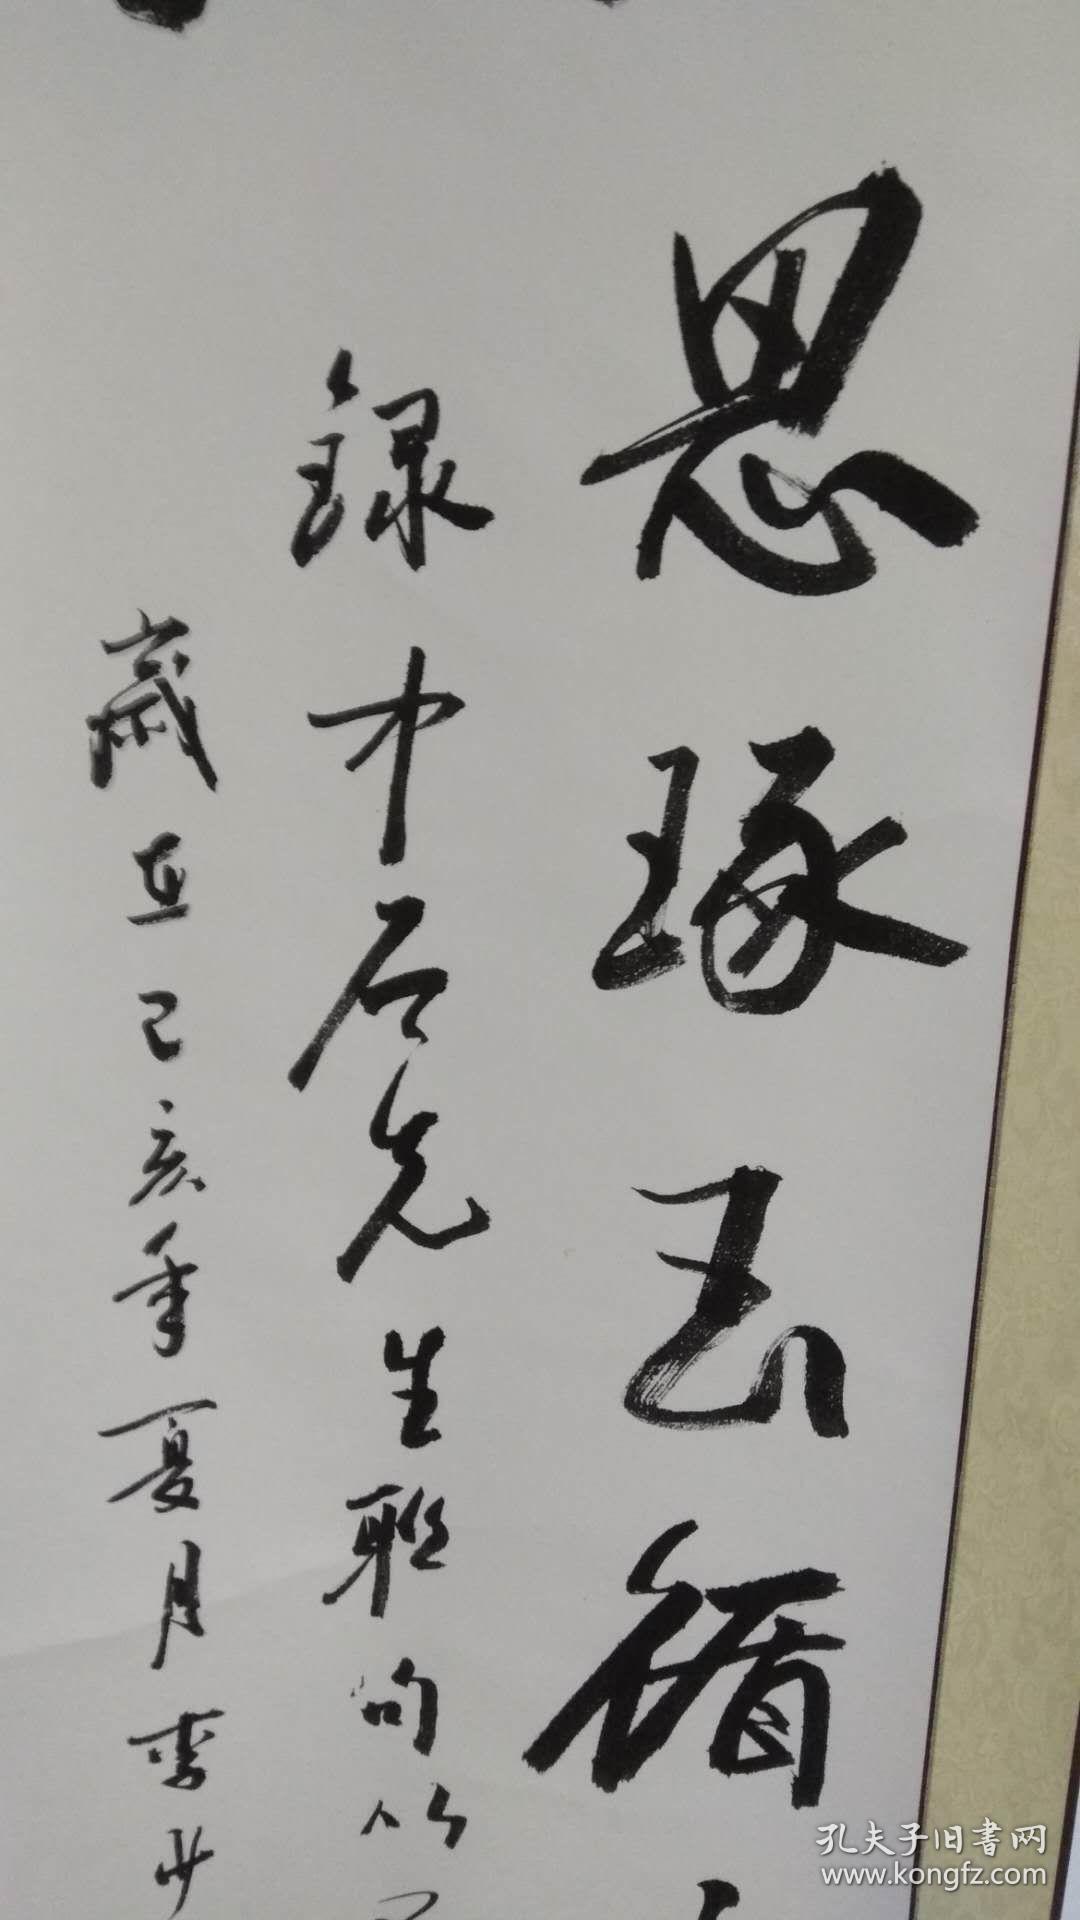 思琢玉循
録中石先生雅句以
歳在己亥年夏月李
孔夫子旧書网
www.kongfz.com